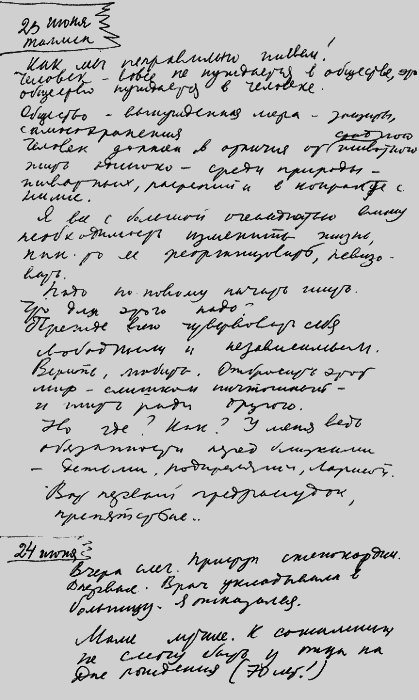 23 июня
Таллин
Как мы неправильно живем!
Человек – вовсе не нуждается в обществе, это
общество нуждается в человеке.
Общество – вынужденная мера – защиты,
самосохранения
Человек должен в отличие от стадного животного
жить одиноко – среди природы –
животных, растений и в контакте с
ними.
Я все с большей очевидностью вижу
необходимость изменить жизнь,
как-то ее реорганизовать, ревизо-
вать.
Надо по-новому начать жить.
Что для этого надо?
Прежде всего чувствовать себя
свободными и независимым.
Верить, любить. Отбросить этот
мир – слишком ничтожный –
и жить ради другого.
Но где? Как? У меня ведь
обязанности перед близкими
– детьми, родителями, Ларисой.
Вот первый предрассудок,
препятствие..
24 июня
Вчера слег. Приступ стенокардии.
Впервые. Врач укладывала в
больницу. Я отказался.
Маме лучше. К сожалению
не смогу быть у отца на
Дне рождения (70 лет!)